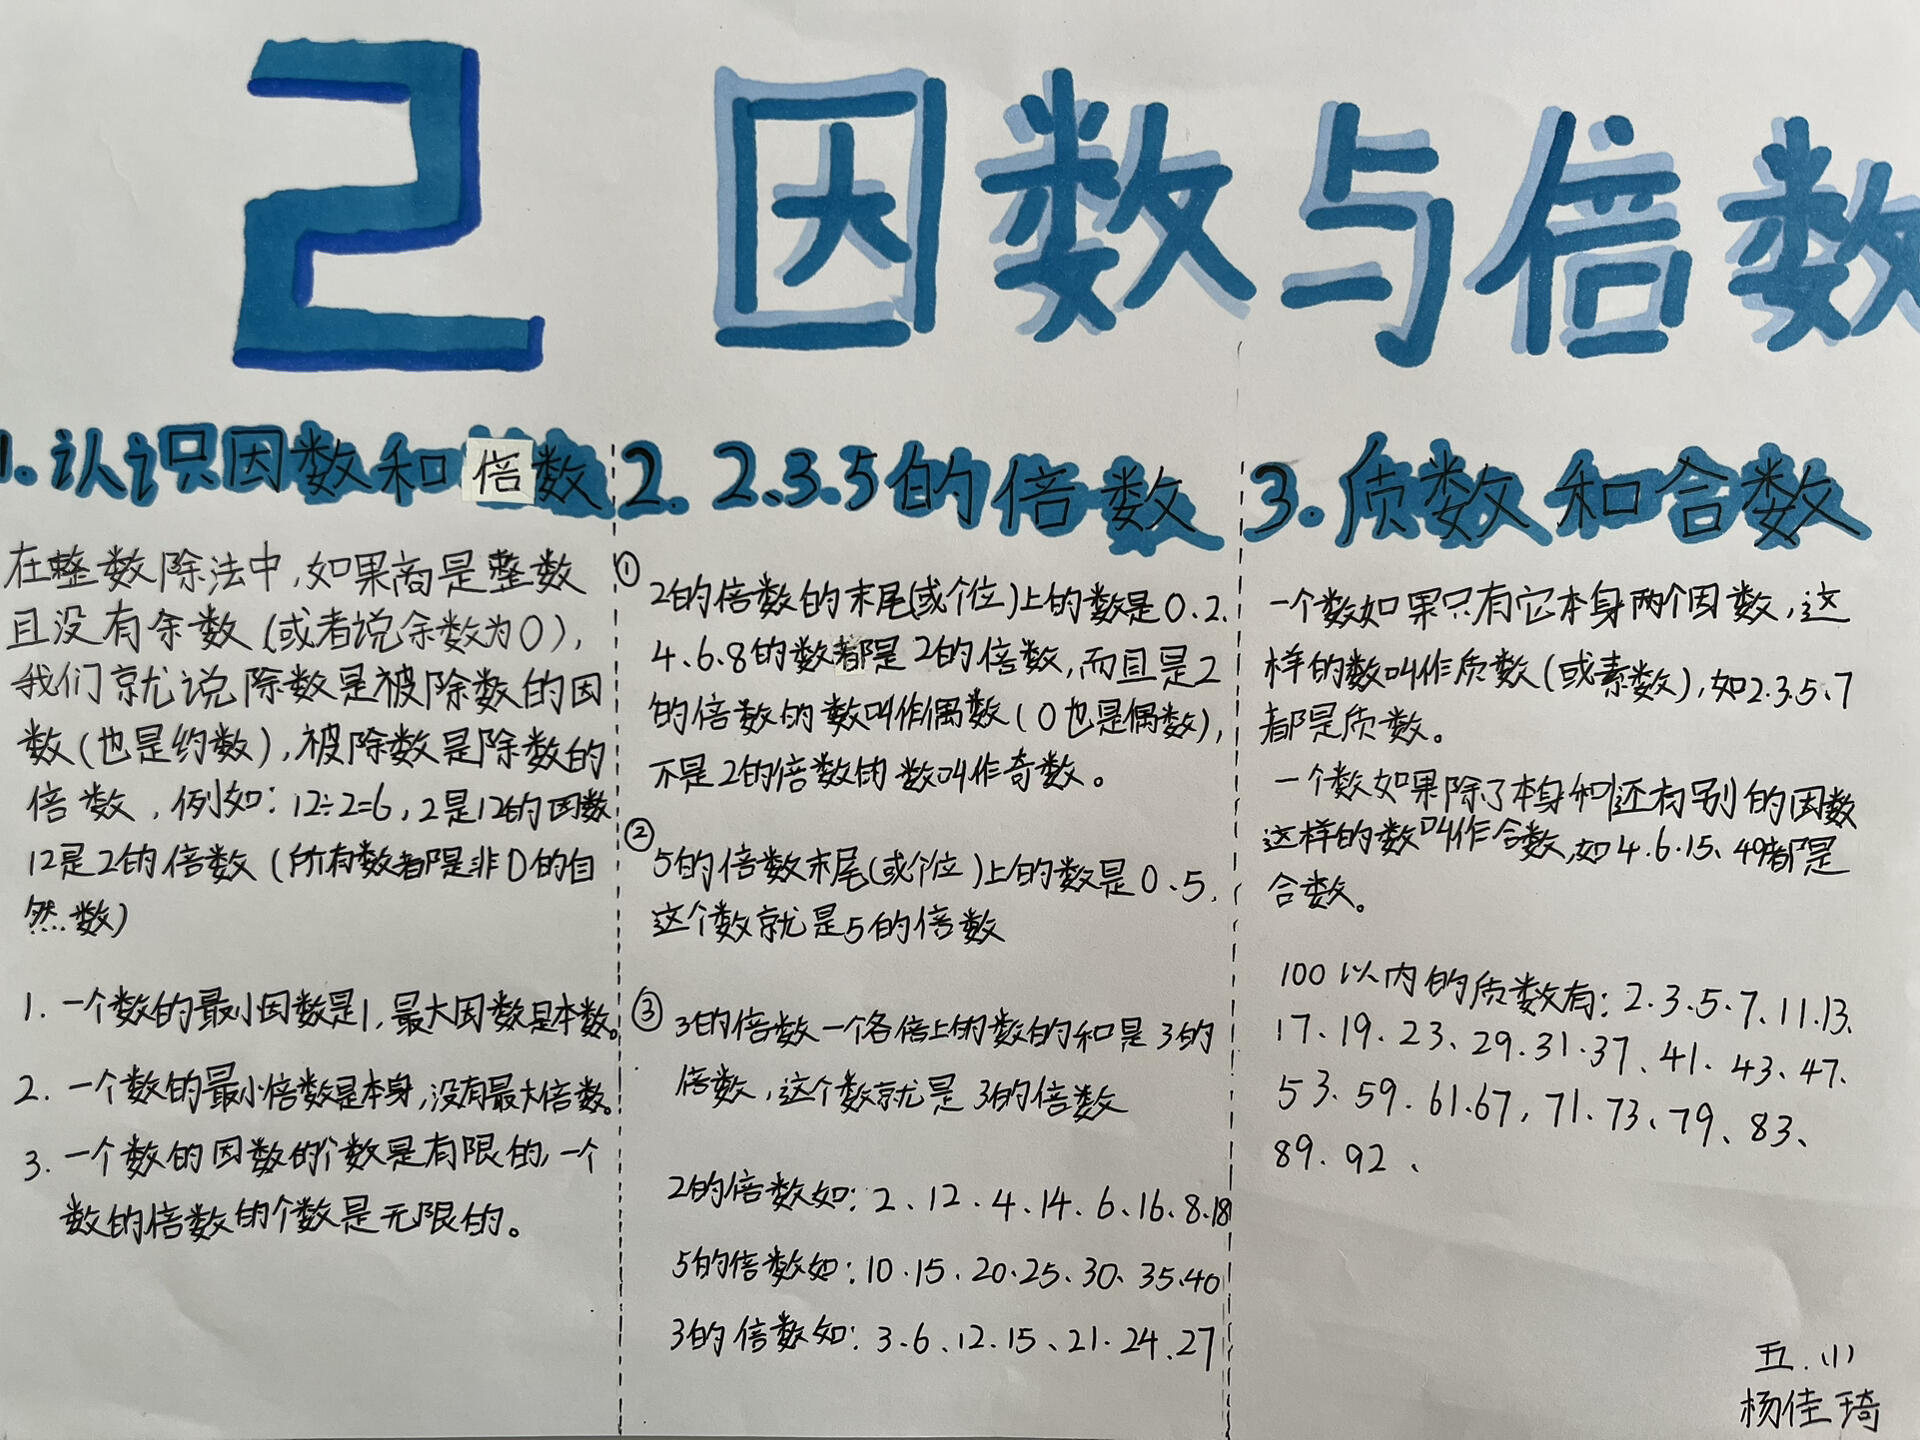 2 因数与倍数
1.认识因数和倍数
在整数除法中,如果商是整数
且没有余数(或者说余数为0),
我们就说除数是被除数的因
数(也是约数),被除数是除数的
倍数,例如:12÷2=6,2是12的因数
12是2的倍数(所有数都是非0的自
然数)
1.一个数的最小因数是1,最大因数是本数。
2.一个数的最小倍数是本身,没有最大倍数。
3.一个数的因数的个数是有限的,一个
数的倍数的个数是无限的。
2. 2.3.5的倍数
①
2的倍数的末尾(或个位)上的数是0.2.
4.6.8的数都是2的倍数,而且是2
的倍数的数叫作偶数(0也是偶数),
不是2的倍数的数叫作奇数。
②
5的倍数末尾(或个位)上的数是0、5,
这个数就是5的倍数
③
3的倍数一个各倍上的数的和是3的
倍数,这个数就是3的倍数
2的倍数如:2、12、4、14、6、16、8、18
5的倍数如:10、15、20、25、30、35、40
3的倍数如:3、6、12、15、21、24、27
3.质数和合数
一个数如果只有它本身两个因数,这
样的数叫作质数(或素数),如2.3.5、7
都是质数。
一个数如果除了本身和1还有别的因数
这样的数叫作合数,如4.6.15、49都是
合数。
100以内的质数有:2.3.5.7、11.13、
17、19.23、29.31.37、41.43、47.
53.59.61.67,71.73、79、83、
89.92、
五.(1)
杨佳琦